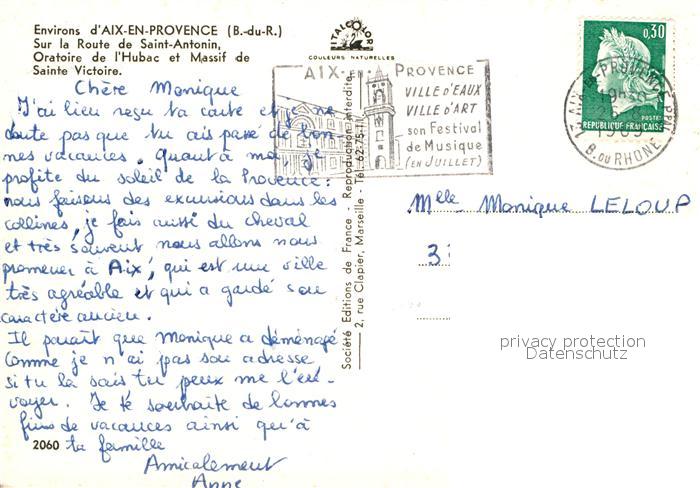 Environs d'AIX-EN-PROVENCE (B.-du-R.)
Sur la Route de Saint-Antonin,
Oratoire de l'Hubac et Massif de
Sainte Victoire.
ITALCOLOR
COULEURS NATURELLES
Chère Monique
J'ai lieu reçu ta carte et je ne
doute pas que tu ais passé de bon-
nes vacances. Quant à moi, je
profite du soleil de la Provence :
nous faisons des excursions dans les
collines, je fais aussi du cheval
et très souvent nous allons nous
promener à Aix, qui est une ville
très agréable et qui a gardé son
caractère ancien.
Il parait que Monique a déménagé
Comme je n'ai pas son adresse
si tu la sais tu peux me l'en-
voyer. Je te souhaite de bonnes
fins de vacances ainsi qu'à
ta famille
Amicalement
Anne
2060
Société Editions de France - Reproduction interdite
2, rue Clapier, Marseille - Tél. 62-75-11
AIX-EN-PROVENCE
VILLE d'EAUX
VILLE d'ART
son Festival
de Musique
(EN JUILLET)
0,30
POSTES
REPUBLIQUE FRANÇAISE
AIX EN PROVENCE PPAL
B. DU RHONE
Melle Monique LELOUP
3
privacy protection
Datenschutz